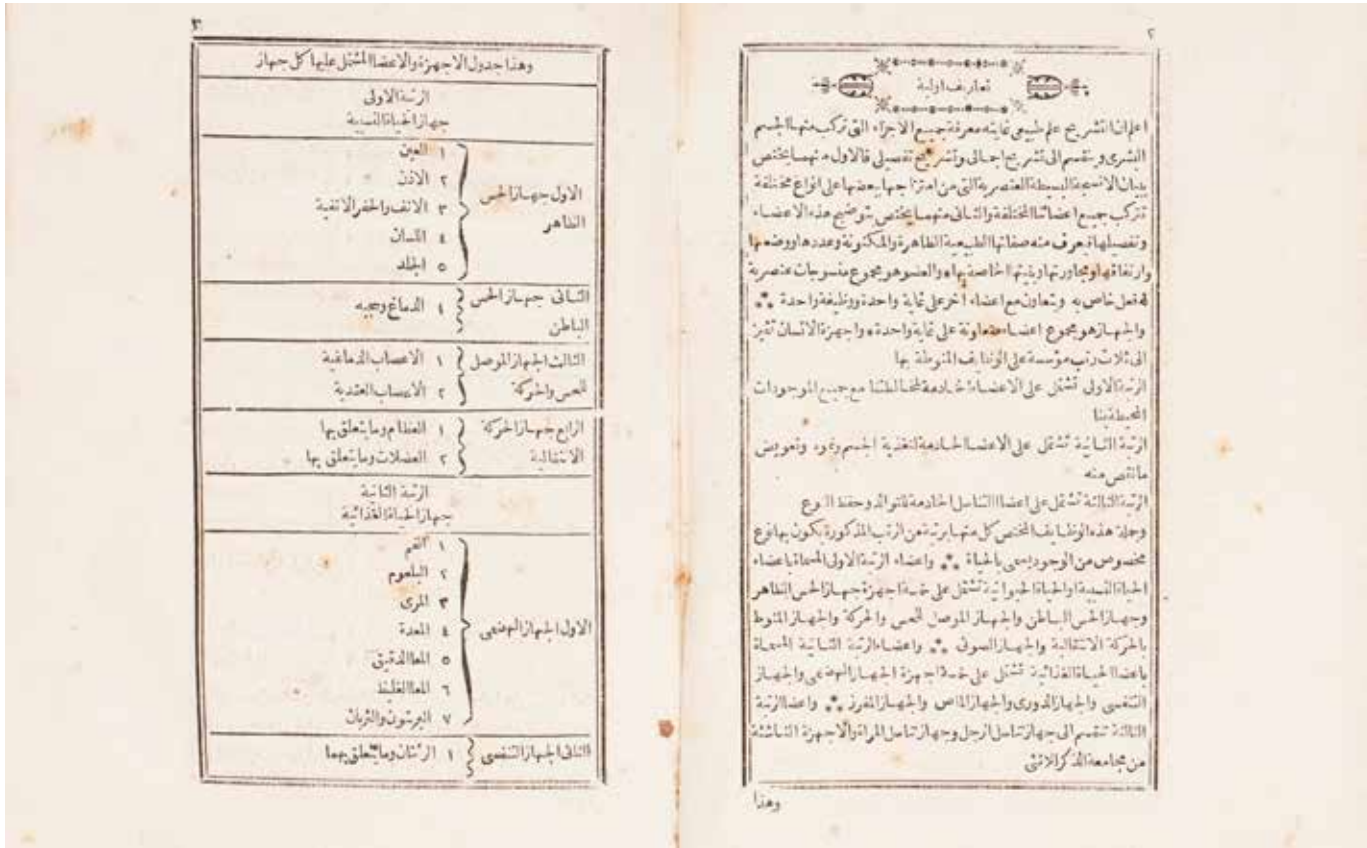 ٢
تعاريف اولية
اعلم ان التشريح علم طبيعى غايته معرفة جميع الاجزاء التى تركب منها الجسم
البشرى وينقسم الى تشريح اجمالى وتشريح تفصيلى فالاول منهما يختص
ببيان الانسجة البسيطة العنصرية التى من امتزاجها بعضها على انواع مختلفة
تتركب جميع اعضائنا المختلفة والثانى منهما يختص بتوضيح هذه الاعضاء
وتفصيلها فيعرف منه صفاتها الطبيعية الظاهرة والمكنونة وعددها ووضعها
وارتفاقها ومجاورتها وبنيتها الخاصة بها والعضو هو مجموع منسوجات عنصرية
له فعل خاص به وتعاون مع اعضاء اخر على غاية واحدة ووظيفة واحدة
والجهاز هو مجموع اعضاء متعاونة على غاية واحدة واجهزة الانسان تتميز
الى ثلاث رتب مؤسسة على الوظايف المنوطة بها
الرتبة الاولى تشتمل على الاعضاء الخادمة لمخالطتنا مع جميع الموجودات
المحيطة بنا
الرتبة الثانية تشتمل على الاعضا الخادمة لتغذية الجسم ونموه وتعويض
ما نقص منه
الرتبة الثالثة تشتمل على اعضاء التناسل الخادمة للتوالد وحفظ النوع
وجملة هذه الوظايف المختص كل منها برتبة من الرتب المذكورة يكون بها نوع
مخصوص من الوجود يسمى بالحياة واعضاء الرتبة الاولى المسماة باعضاء
الحياة النسبية او الحياة الحيوانية تشتمل على خمسة اجهزة جهاز الحس الظاهر
وجهاز الحس الباطن والجهاز الموصل للحس والحركة والجهاز المنوط
بالحركة الانتقالية والجهاز الصوتى واعضاء الرتبة الثانية المسماة
باعضا الحياة الغذائية تشتمل على خمسة اجهزة الجهاز الهضمى والجهاز
التنفسى والجهاز الدورى والجهاز الماص والجهاز المفرز واعضا الرتبة
الثالثة تنقسم الى جهاز تناسل الرجل وجهاز تناسل المراة والاجهزة الناشئة
من مجامعة الذكر الانثى
وهذا
٣
وهذا جدول الاجهزة والاعضا المشتمل عليها كل جهاز
الرتبة الاولى
جهاز الحياة النسبية
الاول جهاز الحس
الظاهر
١ العين
٢ الاذن
٣ الانف والحفر الانفية
٤ اللسان
٥ الجلد
الثانى جهاز الحس
الباطن
١ الدماغ وحجبه
الثالث الجهاز الموصل
للحس والحركة
١ الاعصاب الدماغية
٢ الاعصاب العقدية
الرابع جهاز الحركة
الانتقالية
١ العظام وما يتعلق بها
٢ العضلات وما يتعلق بها
الرتبة الثانية
جهاز الحياة الغذائية
الاول الجهاز الهضمى
١ الفم
٢ البلعوم
٣ المرى
٤ المعدة
٥ المعا الدقيق
٦ المعا الغليظ
٧ البريتون والثربان
الثانى الجهاز التنفسى
١ الرئتان وما يتعلق بهما